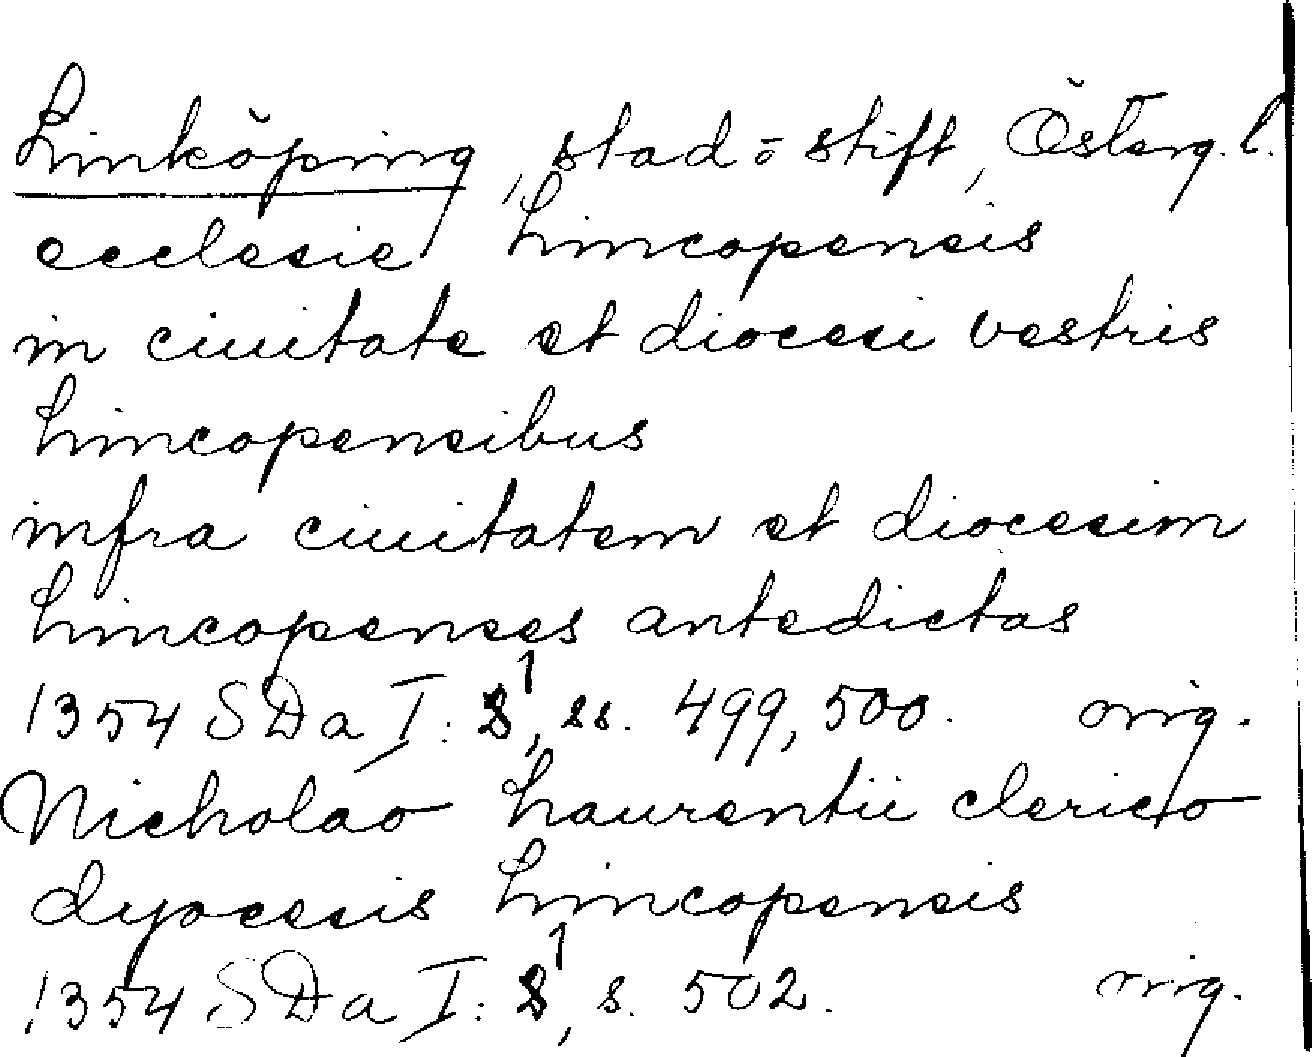 Linköping, stad o. stift, Österg. l.
ecclesie Lincopensis
in ciuitate et diocesi vestris
Lincopensibus
infra ciuitatem et diocesim
Lincopenses antedictas
1354 SDa I: 1, ss. 499, 500. orig.
Nicholao Laurentii clerico
dyocesis Lincopensis
1354 SDa I: 1, s. 502. orig.